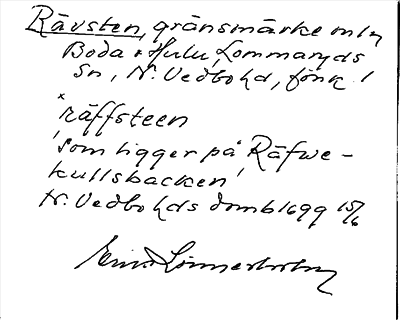 Rävsten, gränsmärke mln
Boda o Hulu, Lommaryds
Sn, N. Vedbo hd, Jönk. l
räffsteen
'som ligger på Räfwe-
kullsbacken'
N. Vedbo hds domb 1699 15/6